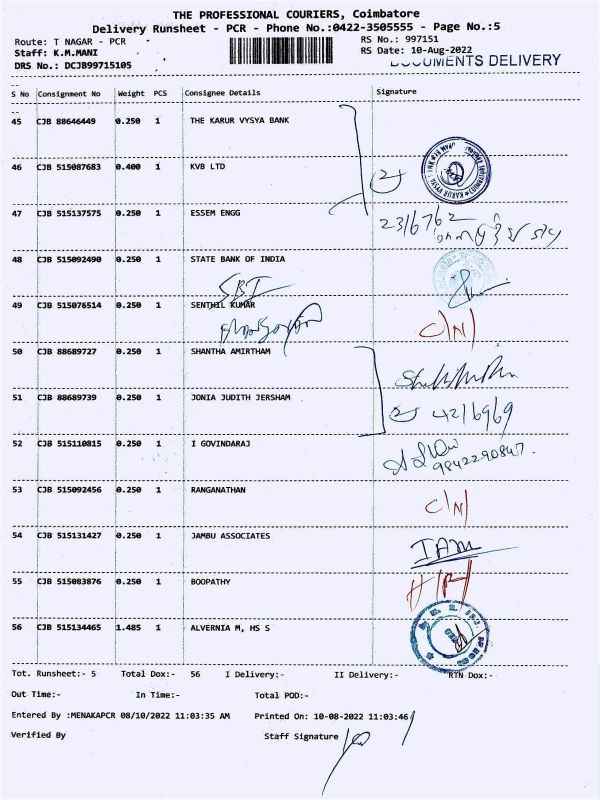 THE PROFESSIONAL COURIERS, Coimbatore
Delivery Runsheet - PCR - Phone No.:0422-3505555 - Page No.:5
Route: T NAGAR - PCR RS No.: 997151
Staff: K.M.MANI RS Date: 10-Aug-2022
DRS No.: DCJB99715105 DOCUMENTS DELIVERY
S No Consignment No Weight PCS Consignee Details Signature
45 CJB 88646449 0.250 1 THE KARUR VYSYA BANK
46 CJB 515087683 0.400 1 KVB LTD 2
47 CJB 515137575 0.250 1 ESSEM ENGG 2316762
48 CJB 515092490 0.250 1 STATE BANK OF INDIA
SBI
49 CJB 515076514 0.250 1 SENTHIL KUMAR C/N
50 CJB 88689727 0.250 1 SHANTHA AMIRTHAM
51 CJB 88689739 0.250 1 JONIA JUDITH JERSHAM 2 4216969
52 CJB 515110815 0.250 1 I GOVINDARAJ 9842290847.
53 CJB 515092456 0.250 1 RANGANATHAN C/N
54 CJB 515131427 0.250 1 JAMBU ASSOCIATES
55 CJB 515083876 0.250 1 BOOPATHY
56 CJB 515134465 1.485 1 ALVERNIA M, HS S
Tot. Runsheet:- 5 Total Dox:- 56 I Delivery:- II Delivery:- RTN Dox:-
Out Time:- In Time:- Total POD:-
Entered By :MENAKAPCR 08/10/2022 11:03:35 AM Printed On: 10-08-2022 11:03:46
Verified By Staff Signature